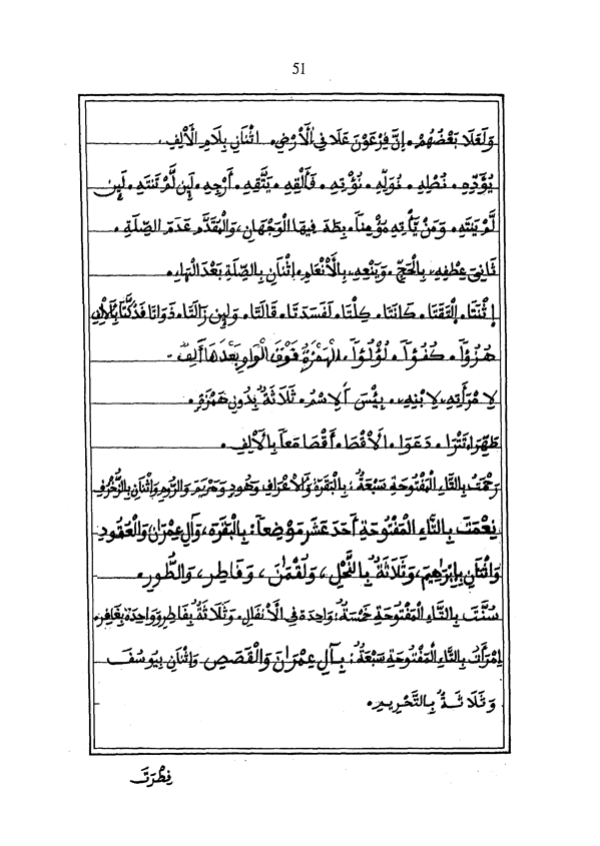 51
وَلَعَلَا بَعْضُهُمْ. إِنَّ فِرْعَوْنَ عَلَا فِي الْأَرْضِ. اثْنَانِ بِلَامِ الْأَلِفِ.
يُؤَدِّهِ. نُصْلِهِ. نُوَلِّهِ. نُؤْتِهِ. فَأَلْقِهِ. يَتَّقِهِ. أَرْجِهِ. لَئِن لَّمْ تَنتَهِ. لَئِن
لَّمْ يَنتَهِ. وَمَنْ يَّأْتِهِ مُؤْمِناً. بِطَهَ فِيهَا الْوَجْهَانِ، وَالْمُقَدَّم عَدَمُ الصِّلَةِ.
ثَانِيَ عِطْفِهِ، بِالْحَجِّ. وَيَنْعِهِ، بِالْأَنْعَامِ. اِثْنَانِ بِالصِّلَةِ بَعْدَ الْهَاءِ.
اِثْنَتَا. اِلْتَقَتَا. كَانَتَا. كِلْتَا. لَفَسَدَتَا. قَالَتَا. وَلَئِن زَالَتَا. ذَوَاتَا فَدُكَّتَا
هُزُؤاً. كُفُؤاً. لُؤْلُؤاً. الْهَمْزَةُ فَوْقَ الْوَاوِ بَعْدَهَا أَلِفٌ.
لِامْرَأَتِهِ. لِابْنِهِ. بِئْسَ اَلِاسْمُ. ثَلَاثَةٌ بِدُونِ هَمْزَةٍ.
تَتْرَا. دَعَوَا. الْأَقْصَا. أَقْصَا مَعاً بِالْأَلِفِ.
رَحْمَتُ بِالتَّاءِ الْمَفْتُوحَةِ سَبْعَةٌ: بِالْبَقَرَةِ وَالْأَعْرَافِ وَهُودٍ وَمَرْيَمَ وَالرُّومِ وَاثْنَانِ بِالزُّخْرُفِ
نِعْمَتَ بِالتَّاءِ الْمَفْتُوحَةِ أَحَدَ عَشَرَ مَوْضِعاً: بِالْبَقَرَةِ، وَآلِ عِمْرَانَ وَالْعُقُودِ
وَاثْنَانِ بِإِبْرَاهِيمَ، وَثَلَاثَةٌ بِالنَّحْلِ، وَلُقْمَانَ، وَفَاطِرِ، وَالطُّورِ.
سُنَّتَ بِالتَّاءِ الْمَفْتُوحَةِ خَمْسَةٌ: وَاحِدَة فِي الْأَنْفَالِ. وَثَلَاثَةٌ بِفَاطِرٍ وَوَاحِدَة بِغَافِرٍ.
اِمْرَأَتُ بِالتَّاءِ الْمَفْتُوحَةِ سَبْعَةٌ: بِآلِ عِمْرَانَ وَالْقَصَصِ وَاثْنَانِ بِيُوسُفَ
وَثَلَاثَةٌ بِالتَّحْرِيمِ.
فِطْرَتَ